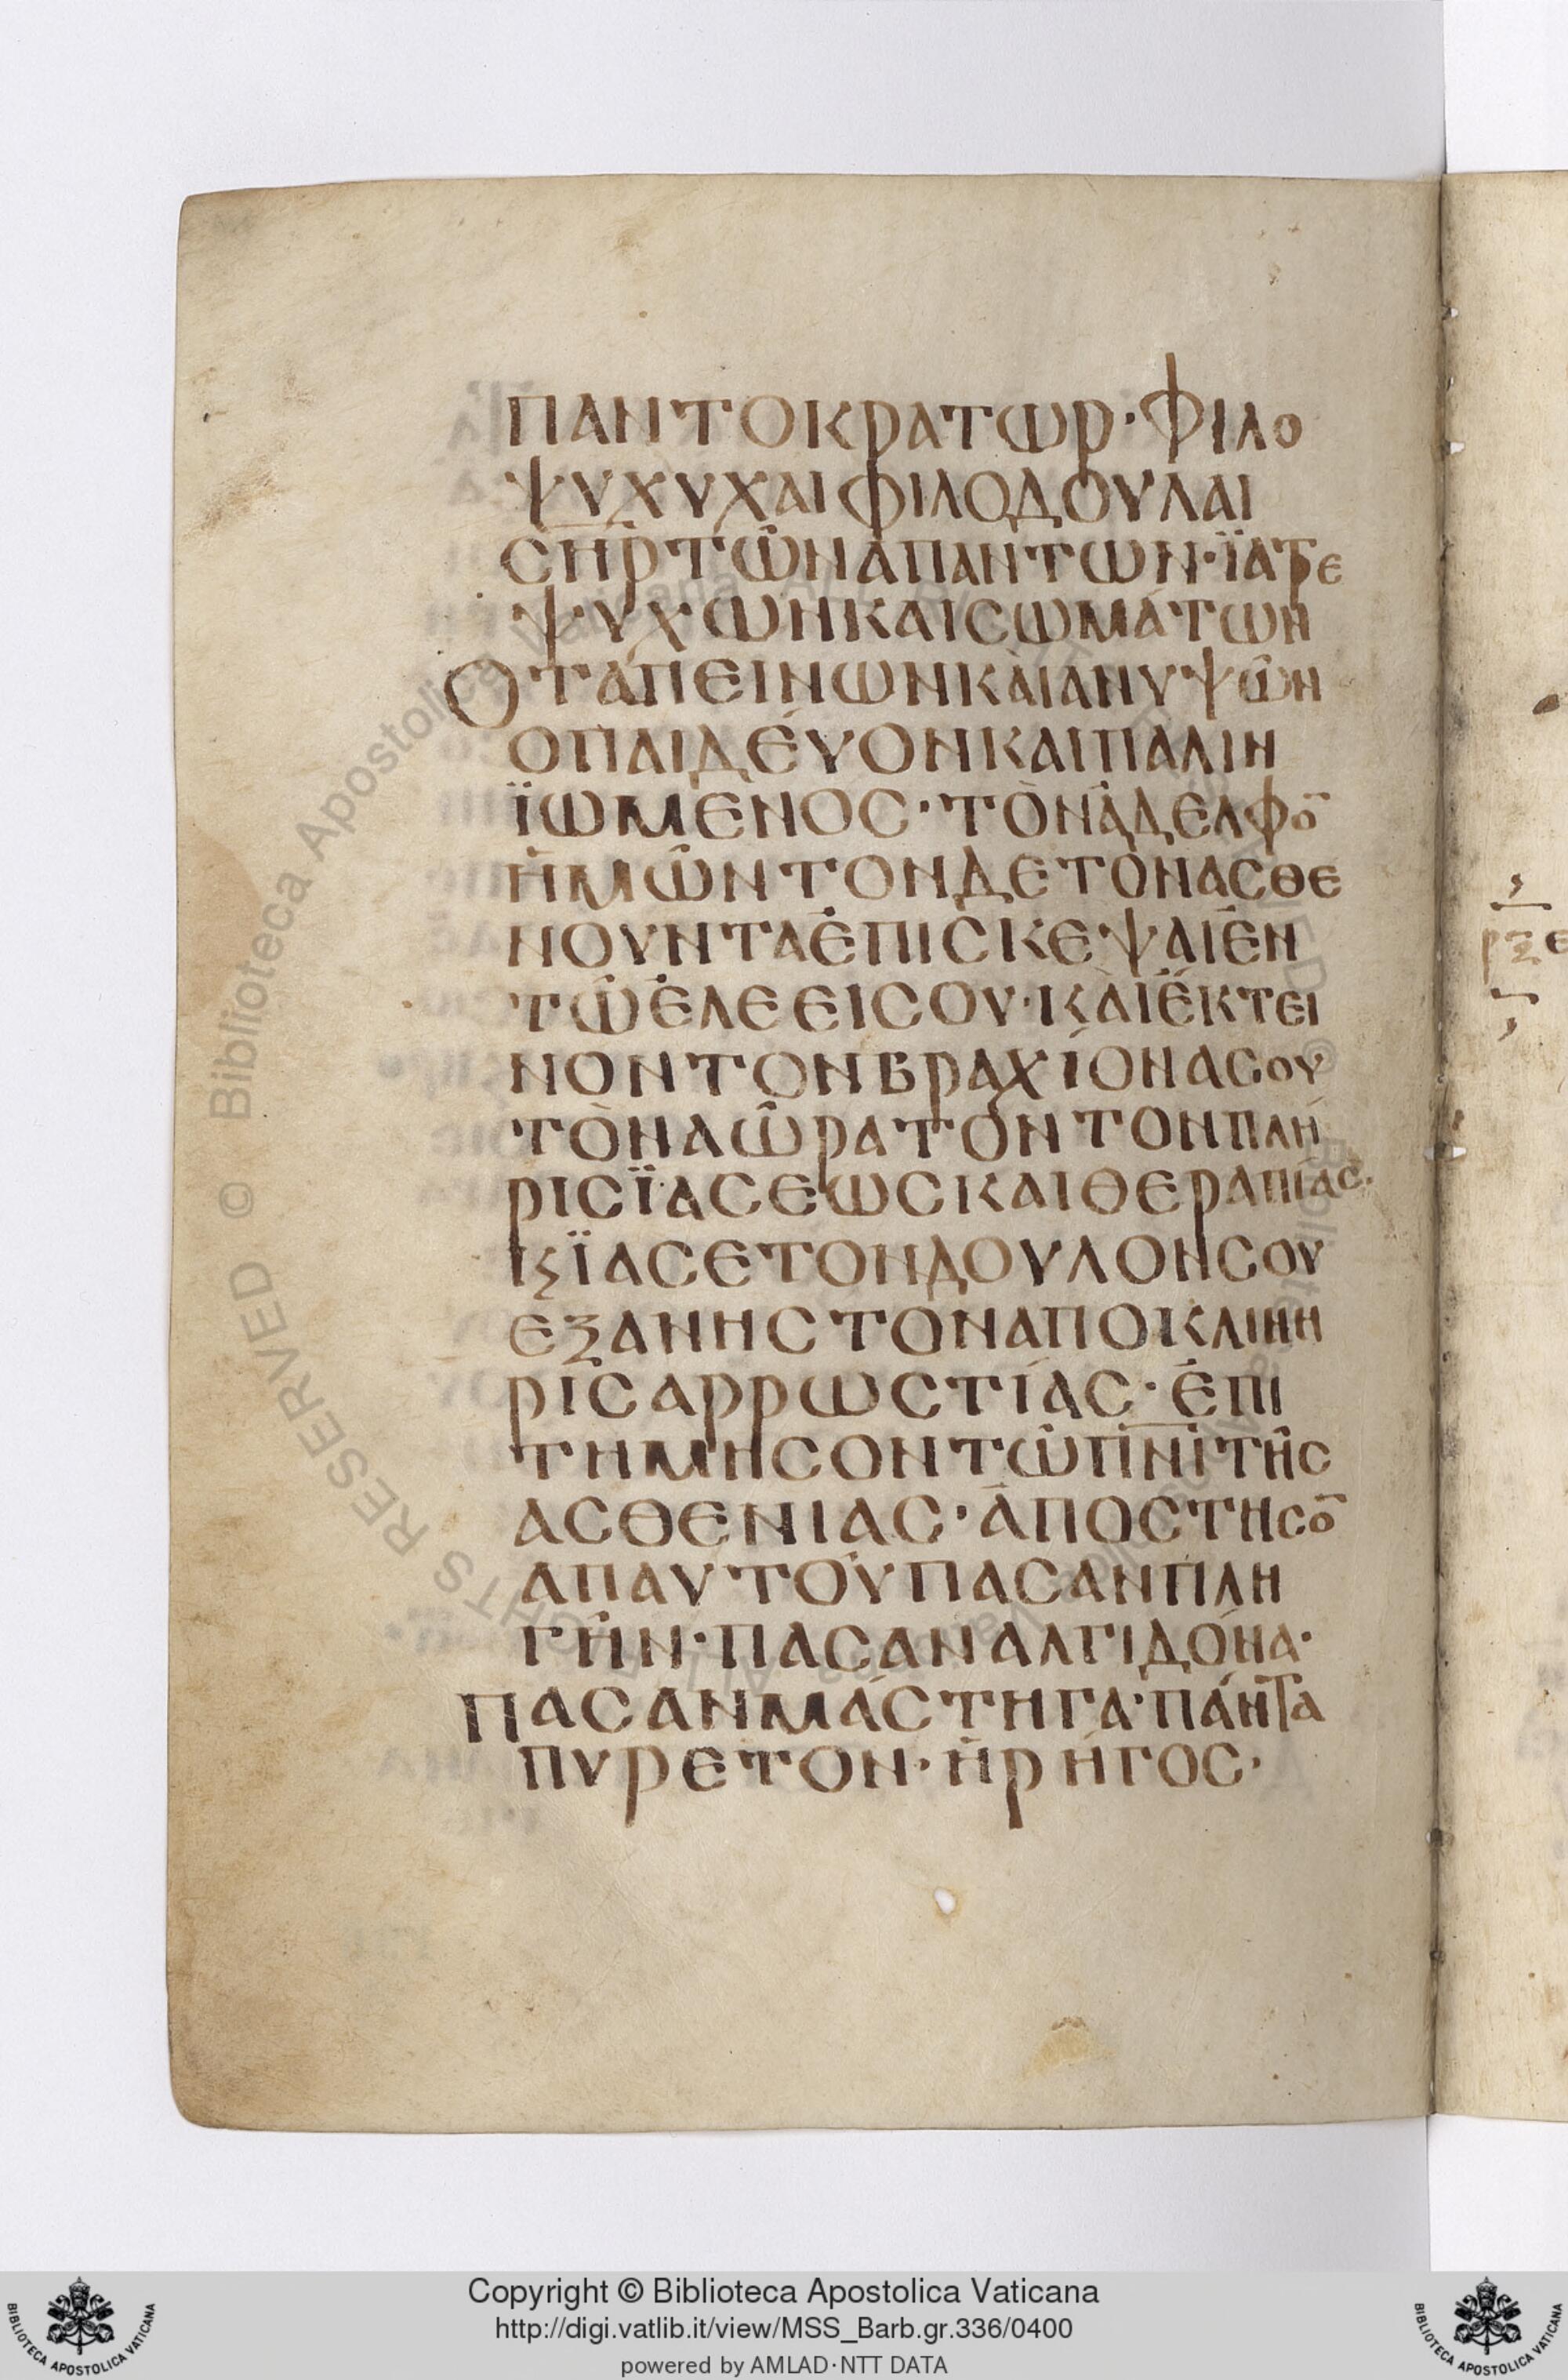 ΠΑΝΤΟΚΡΑΤΩΡ·ΦΙΛΟ
ΨΥΧΥΧΑΙΦΙΛΟΔΟΥΛΑΙ
Σ̅Η̅Ρ̅ΤΩ͂ΝἈΠΑΝΤΩΝ·ΪΑΤΡΕ
ΨΥΧΩΝΚΑΙΣΩΜΆΤΩΝ
ΟΤΑΠΕΙΝΩΝΚΑῚΑΝΥΨΩ͂Ν
ΟΠΑΙΔΕΎΟΝΚΑΙΠΑΛΙΝ
ΪΩΜΕΝΟΣ·ΤῸΝἈΔΕΛΦΟ̅
ἩΜΩ͂ΝΤΟΝΔΕΤΟΝΑΣΘΕ
ΝΟΥΝΤΑἘΠΙΣΚΕΨΑΙἘΝ
ΤΩ͂ἘΛΕΕΙΣΟΥ·ΚΑῚἜΚΤΕΙ
ΝΟΝΤΟΝΒΡΑΧΊΟΝΑΣΟΥ
ΤῸΝΑΩ͂ΡΑΤΟΝΤΟΝΠΛΉ
ΡΙΣΪΑΣΕΩΣΚΑΙΘΕΡΑΠΊΑΣ·
ΚϚΪΑΣΕΤΟΝΔΟΥΛΟΝΣΟΥ
ΕΞΑΝΗΣΤΟΝΑΠΟΚΛΙΝΗ
ΡΙΣΑΡΡΩΣΤΊΑΣ·ἘΠΙ
ΤΗΜΗΣΟΝΤΩ͂Π̅Ν̅Ι̅ΤΗ͂Σ
ΑΣΘΕΝΙΑΣ·ἈΠΟΣΤΗΣΟ̅
ΑΠΑΥΤΟΎΠΑΣΑΝΠΛΗ
ΓΗ͂Ν·ΠΑΣΑΝΑΛΓΙΔΌΝΑ·
ΠΑΣΑΝΜΆΣΤΗΓΑ·ΠΆΝΤΑ
ΠΥΡΕΤΟΝ·ἨΡΉΓΟΣ·
ρξε
© Biblioteca Apostolica Vaticana
RIGHTS RESERVED
Copyright © Biblioteca Apostolica Vaticana
http://digi.vatlib.it/view/MSS_Barb.gr.336/0400
powered by AMLAD·NTT DATA
BIBLIOTECA APOSTOLICA VATICANA
BIBLIOTECA APOSTOLICA VATICANA